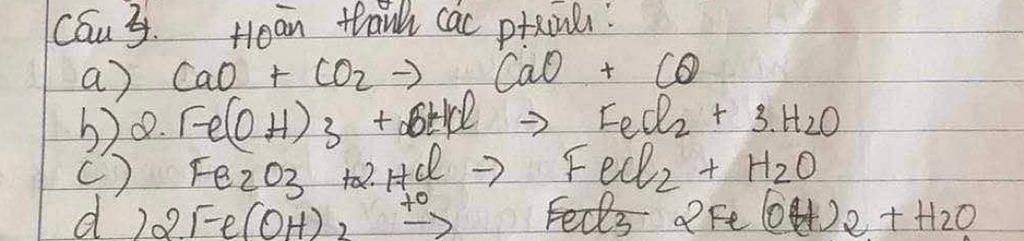 Câu 3. Hoàn thành các ptrình:
a) CaO + CO2 → CaO + CO
b) 2. Fe(OH)3 + 6HCl → FeCl2 + 3.H2O
c) Fe2O3 +2.HCl → FeCl2 + H2O
d) 2.Fe(OH)2 t° → 2Fe(OH)2 + H2O